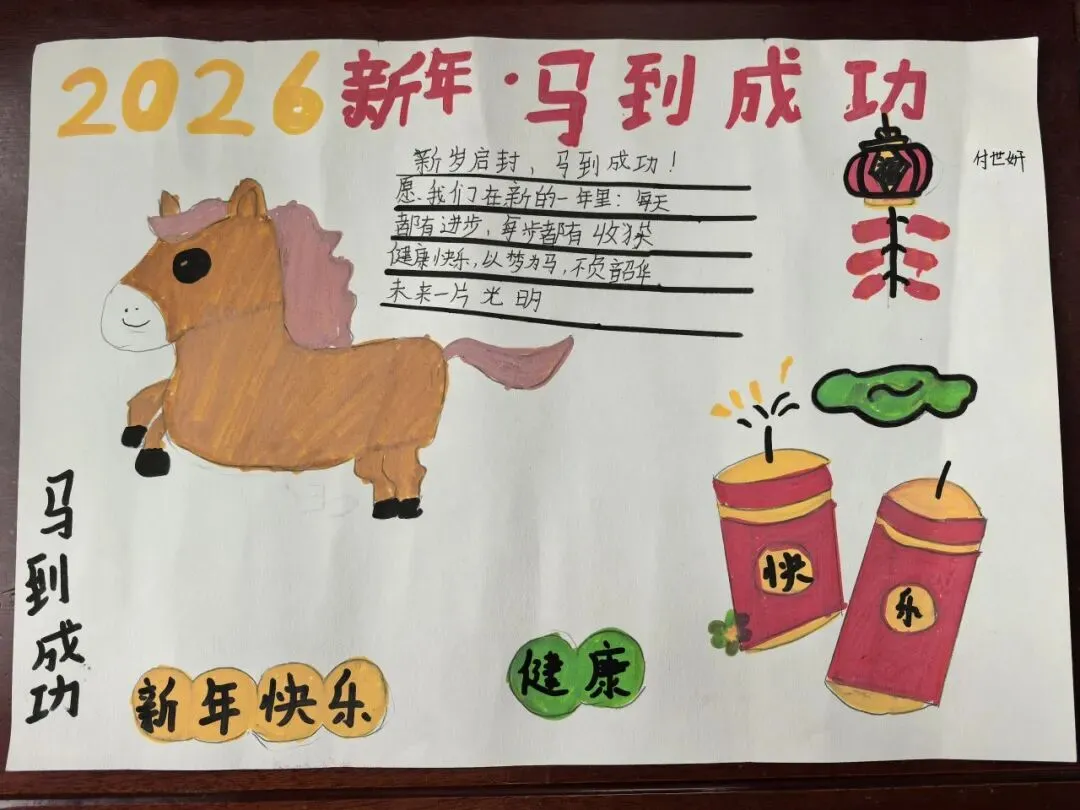 2026新年·马到成功
付世妍
新岁启封，马到成功！
愿我们在新的一年里：每天
都有进步，每步都有收获
健康快乐，以梦为马，不负韶华
未来一片光明
福
马到成功
快
乐
新年快乐
健康